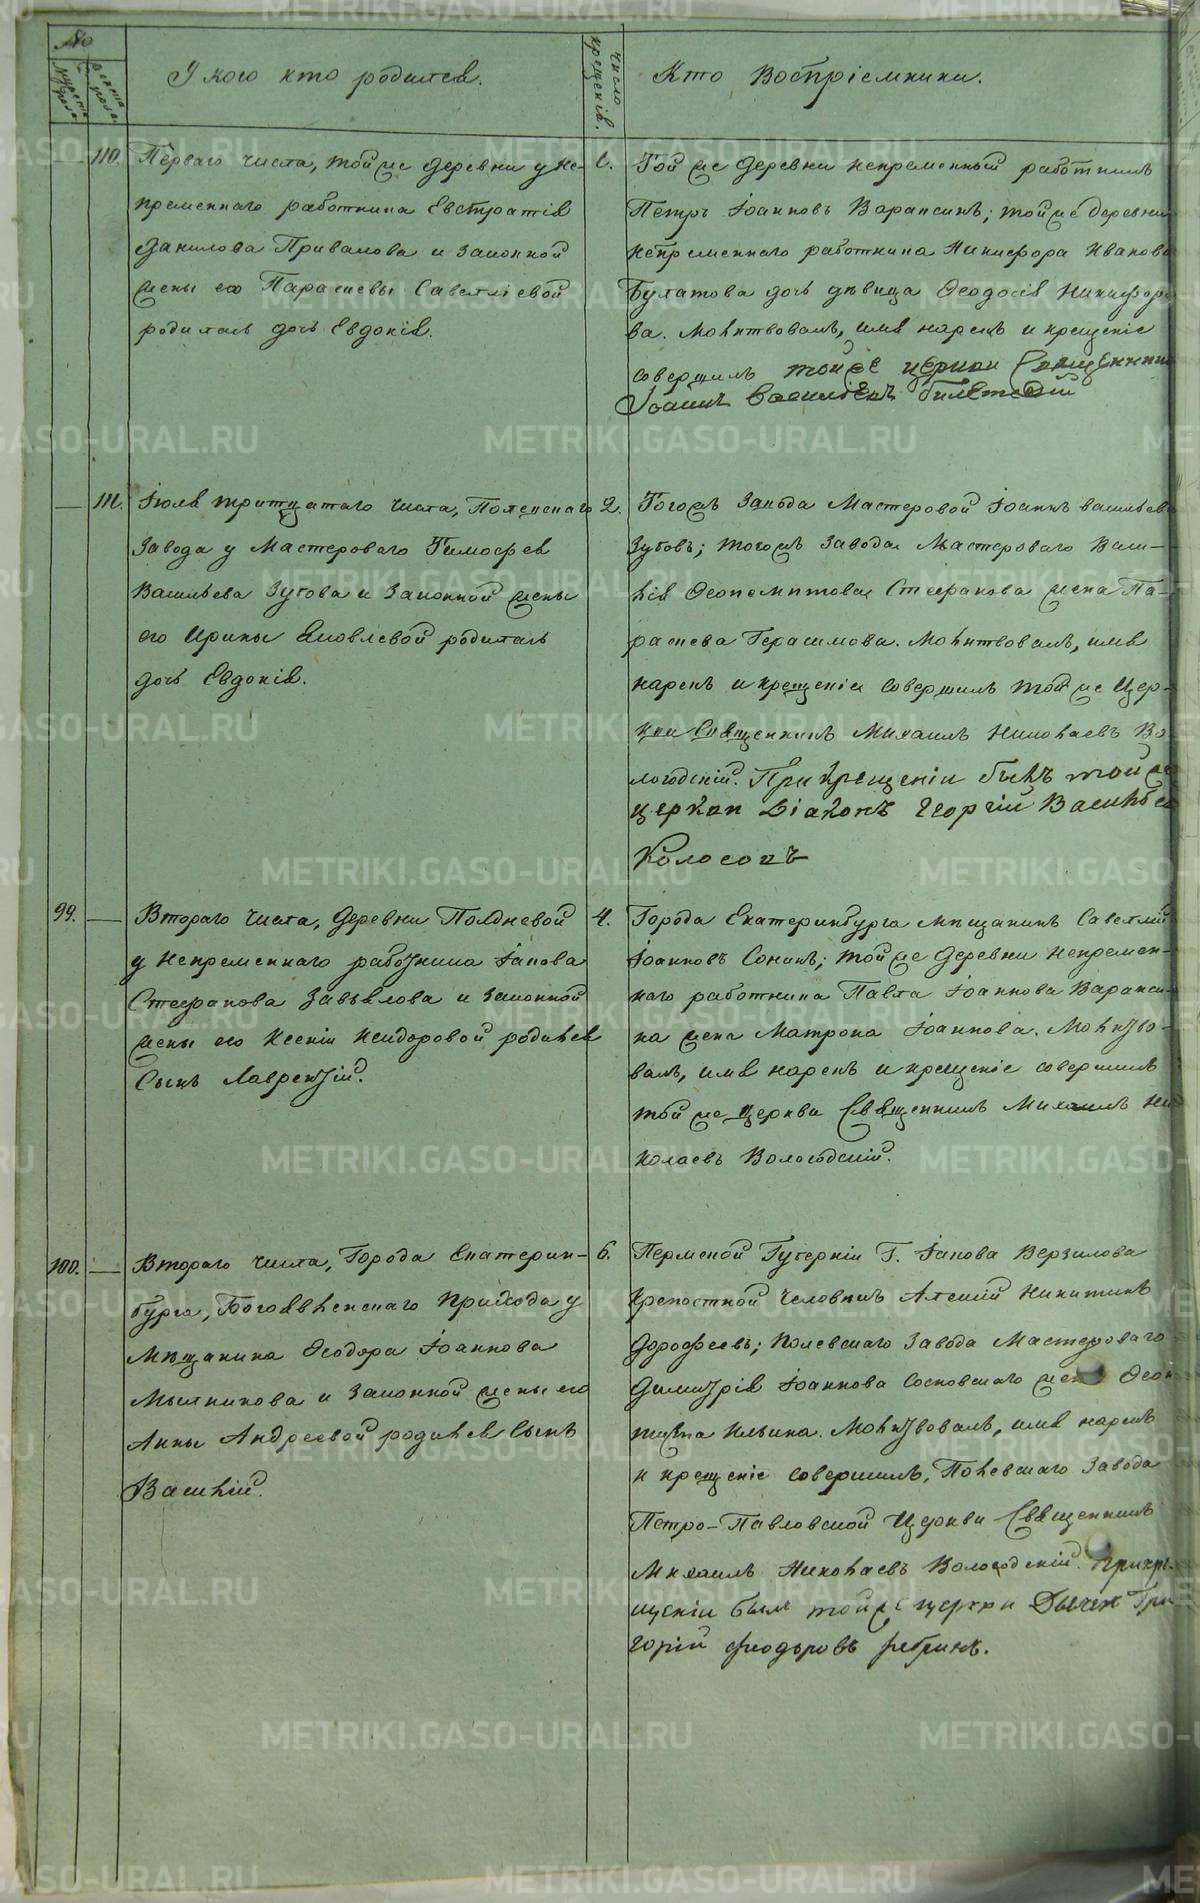 №
мужеска пола.
женска пола.
У кого кто родился.
число крещенія.
Кто Воспріемники.
110.
Перваго числа, тойже деревни у не-
пременнаго работника Евстратія
Данилова Привалова и законной
жены его Параскевы Савеліевой
родилась дочь Евдокія.
1.
Той же деревни непременный работникъ
Петръ Іоанновъ Вараксинъ; тойже деревни
непременнаго работника Никифора Иванова
Булатова дочь дѣвица Ѳеодосія Никифоро
ва. Молитвовалъ, имя нарекъ и крещеніе
совершилъ тойже церкви Священникъ
Іоаннъ Васильевъ
111.
Іюля тритцатаго числа, Полевскаго
Завода у Мастероваго Тимофея
Васильева Зубова и Законной жены
его Ирины Яковлевой родилась
дочь Евдокія.
2.
Тогожъ Завода Мастеровой Іоаннъ васильев
Зубовъ; тогожъ Завода Мастероваго Васи-
лія Стефанова жена Па-
раскева Герасимова. Молитвовалъ, имя
нарекъ и крещеніе совершилъ той же Цер-
кви Священникъ Михаилъ Николаевъ Во-
логодскій. При крещеніи былъ той же
церкви Діаконъ Георгій Васильев
Колосовъ
99.
Втораго числа, деревни Полдневой
у непременнаго работника Іакова
Стефанова Завьялова и законной
жены его Ксеніи Исидоровой родился
Сынъ Лаврентій.
4.
Города Екатеринбурга мѣщанинъ Савелій
Іоанновъ Сонинъ; той же деревни непремен-
наго работника Павла ІоанноваВаракси-
на жена Матрона Іоаннова. Молитво-
валъ, имя нарекъ и крещеніе совершилъ
той же церкви Священникъ Михаилъ Ни
колаевъ Вологодскій.
100.
Втораго числа, Города Екатерин-
бурга, Богоявленскаго прихода у
Мѣщанина Ѳеодора Іоаннова
Мыльникова и Законной жены его
Анны Андреевой родился Сынъ
Василій.
6.
Пермской Губерніи Г. Іакова Верзилова
крепостной человекъ Алексій Никитинъ
Дорофеевъ; Полевскаго Завода Мастероваго
Димитрія Іоаннова Сосновскаго жена
Ильина. Молитвовалъ, имя нарекъ
и крещеніе совершилъ, Полевскаго Завода
Петро-Павловской Церкви Священникъ
Михаилъ Николаевъ Вологодскій. При кре-
щеніи былъ тойже церкви Дьячек Гри
горій феодоровъ
METRIKI.GASO-URAL.RU